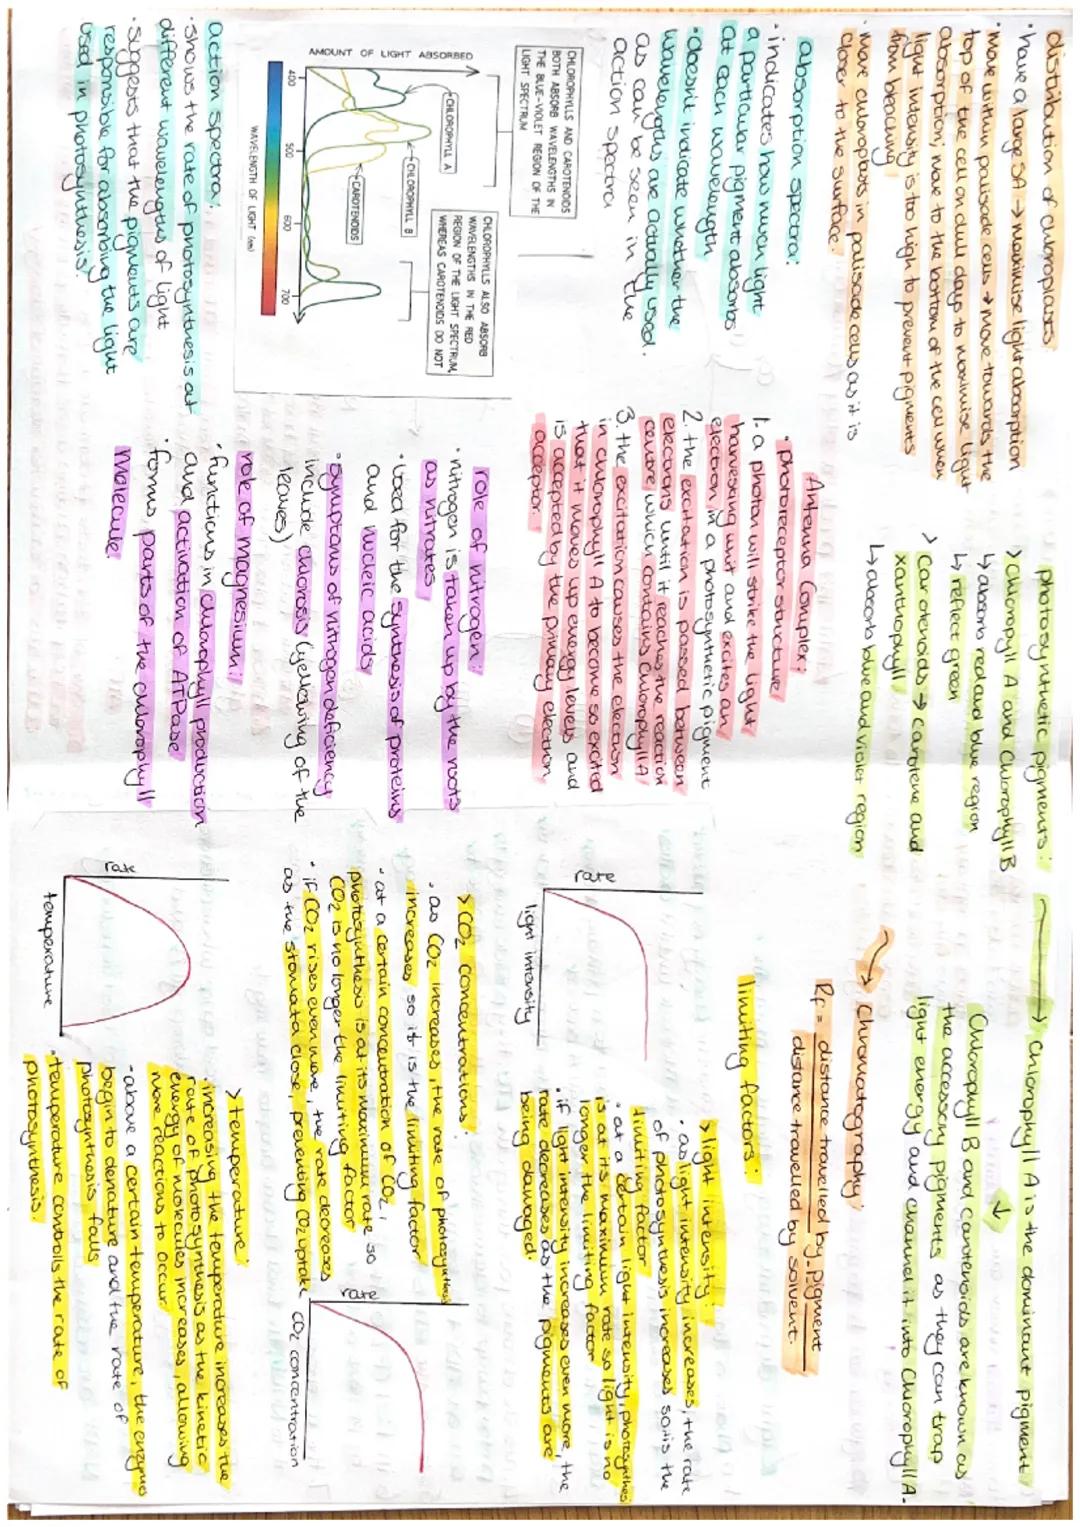 distribution of chloroplasts:
· have a large SA → maximise light absorption
· move within palisade cells → move towards the
top of the cell on dull days to maximise light
absorption; move to the bottom of the cell when
light intensity is too high to prevent pigments
from bleaching
· more chloroplasts in palisade cells as it is
closer to the surface.
absorption spectra:
· indicates how much light
a particular pigment absorbs
at each wavelength
· doesn't indicate whether the
wavelengths are actually used.
as can be seen in the
action spectra
CHLOROPHYLLS AND CAROTENOIDS
BOTH ABSORB WAVELENGTHS IN
THE BLUE-VIOLET REGION OF THE
LIGHT SPECTRUM
CHLOROPHYLLS ALSO ABSORB
WAVELENGTHS IN THE RED
REGION OF THE LIGHT SPECTRUM,
WHEREAS CAROTENOIDS DO NOT
CHLOROPHYLL A
CHLOROPHYLL B
CAROTENOIDS
AMOUNT OF LIGHT ABSORBED
400 500 600 700
WAVELENGTH OF LIGHT (nm)
action spectra:
· shows the rate of photosynthesis at
different wavelengths of light
· suggests that the pigments are
responsible for absorbing the light
used in photosynthesis.
photosynthetic pigments:
> chlorophyll A and chlorophyll B
↳ absorb red and blue region
↳ reflect green
> Carotenoids → carotene and
xanthophyll
↳ absorb blue and violet region
Antenna Complex:
· photoreceptor structure
1. a photon will strike the light
harvesting unit and excites an
electron in a photosynthetic pigment
2. the excitation is passed between
electrons until it reaches the reaction
centre, which contains chlorophyll A
3. the excitation causes the electron
in chlorophyll A to become so excited
that it moves up energy levels and
is accepted by the primary electron
acceptor.
role of nitrogen:
· nitrogen is taken up by the roots
as nitrates
· used for the synthesis of proteins
and nucleic acids
· symptoms of nitrogen deficiency
include chlorosis (yellowing of the
leaves)
role of magnesium:
· functions in chlorophyll production
and activation of ATPase
· forms parts of the chlorophyll
molecule
→ chlorophyll A is the dominant pigment
↓
Chlorophyll B and carotenoids are known as
the accessory pigments as they can trap
light energy and channel it into chlorophyll A.
→ Chromatography:
Rf = distance travelled by pigment
distance travelled by solvent.
limiting factors:
> light intensity:
· as light intensity increases, the rate
of photosynthesis increases so its the
limiting factor
· at a certain light intensity, photosynthesis
is at its maximum rate so light is no
longer the limiting factor
· if light intensity increases even more, the
rate decreases as the pigments are
being damaged.
rate
light intensity
> CO2 concentrations:
· as CO2 increases, the rate of photosynthesis
increases so it is the limiting factor
· at a certain concentration of CO2,
photosynthesis is at its maximum rate so
CO2 is no longer the limiting factor
· if CO2 rises even more, the rate decreases
as the stomata close, preventing CO2 uptake
rate
CO2 concentration
> temperature:
· increasing the temperature increases the
rate of photosynthesis as the kinetic
energy of molecules increases, allowing
more reactions to occur
· above a certain temperature, the enzymes
begin to denature and the rate of
photosynthesis falls
· temperature controlls the rate of
photosynthesis.
rate
temperature